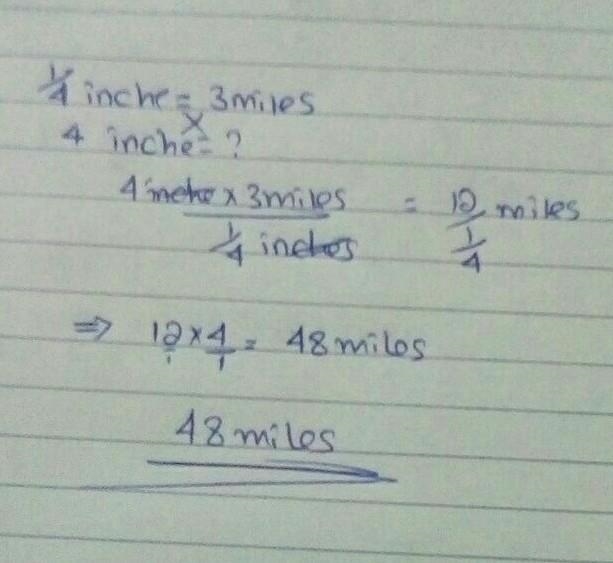 1/4 inche = 3miles
×
4 inche = ?
4 inche × 3miles / 1/4 inches = 12 / 1/4 miles
⇒ 12/1 × 4/1 = 48 miles
48 miles